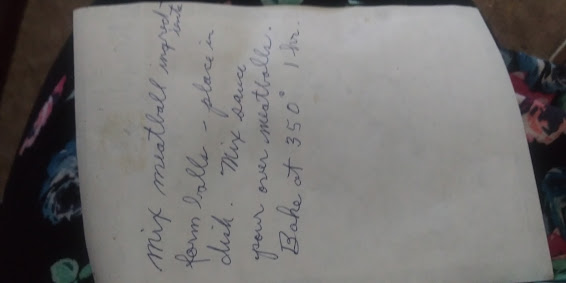 mix meatball ingred-
ients
form balls - place in
dish. Mix sauce
pour over meatballs.
Bake at 350° 1 hr.